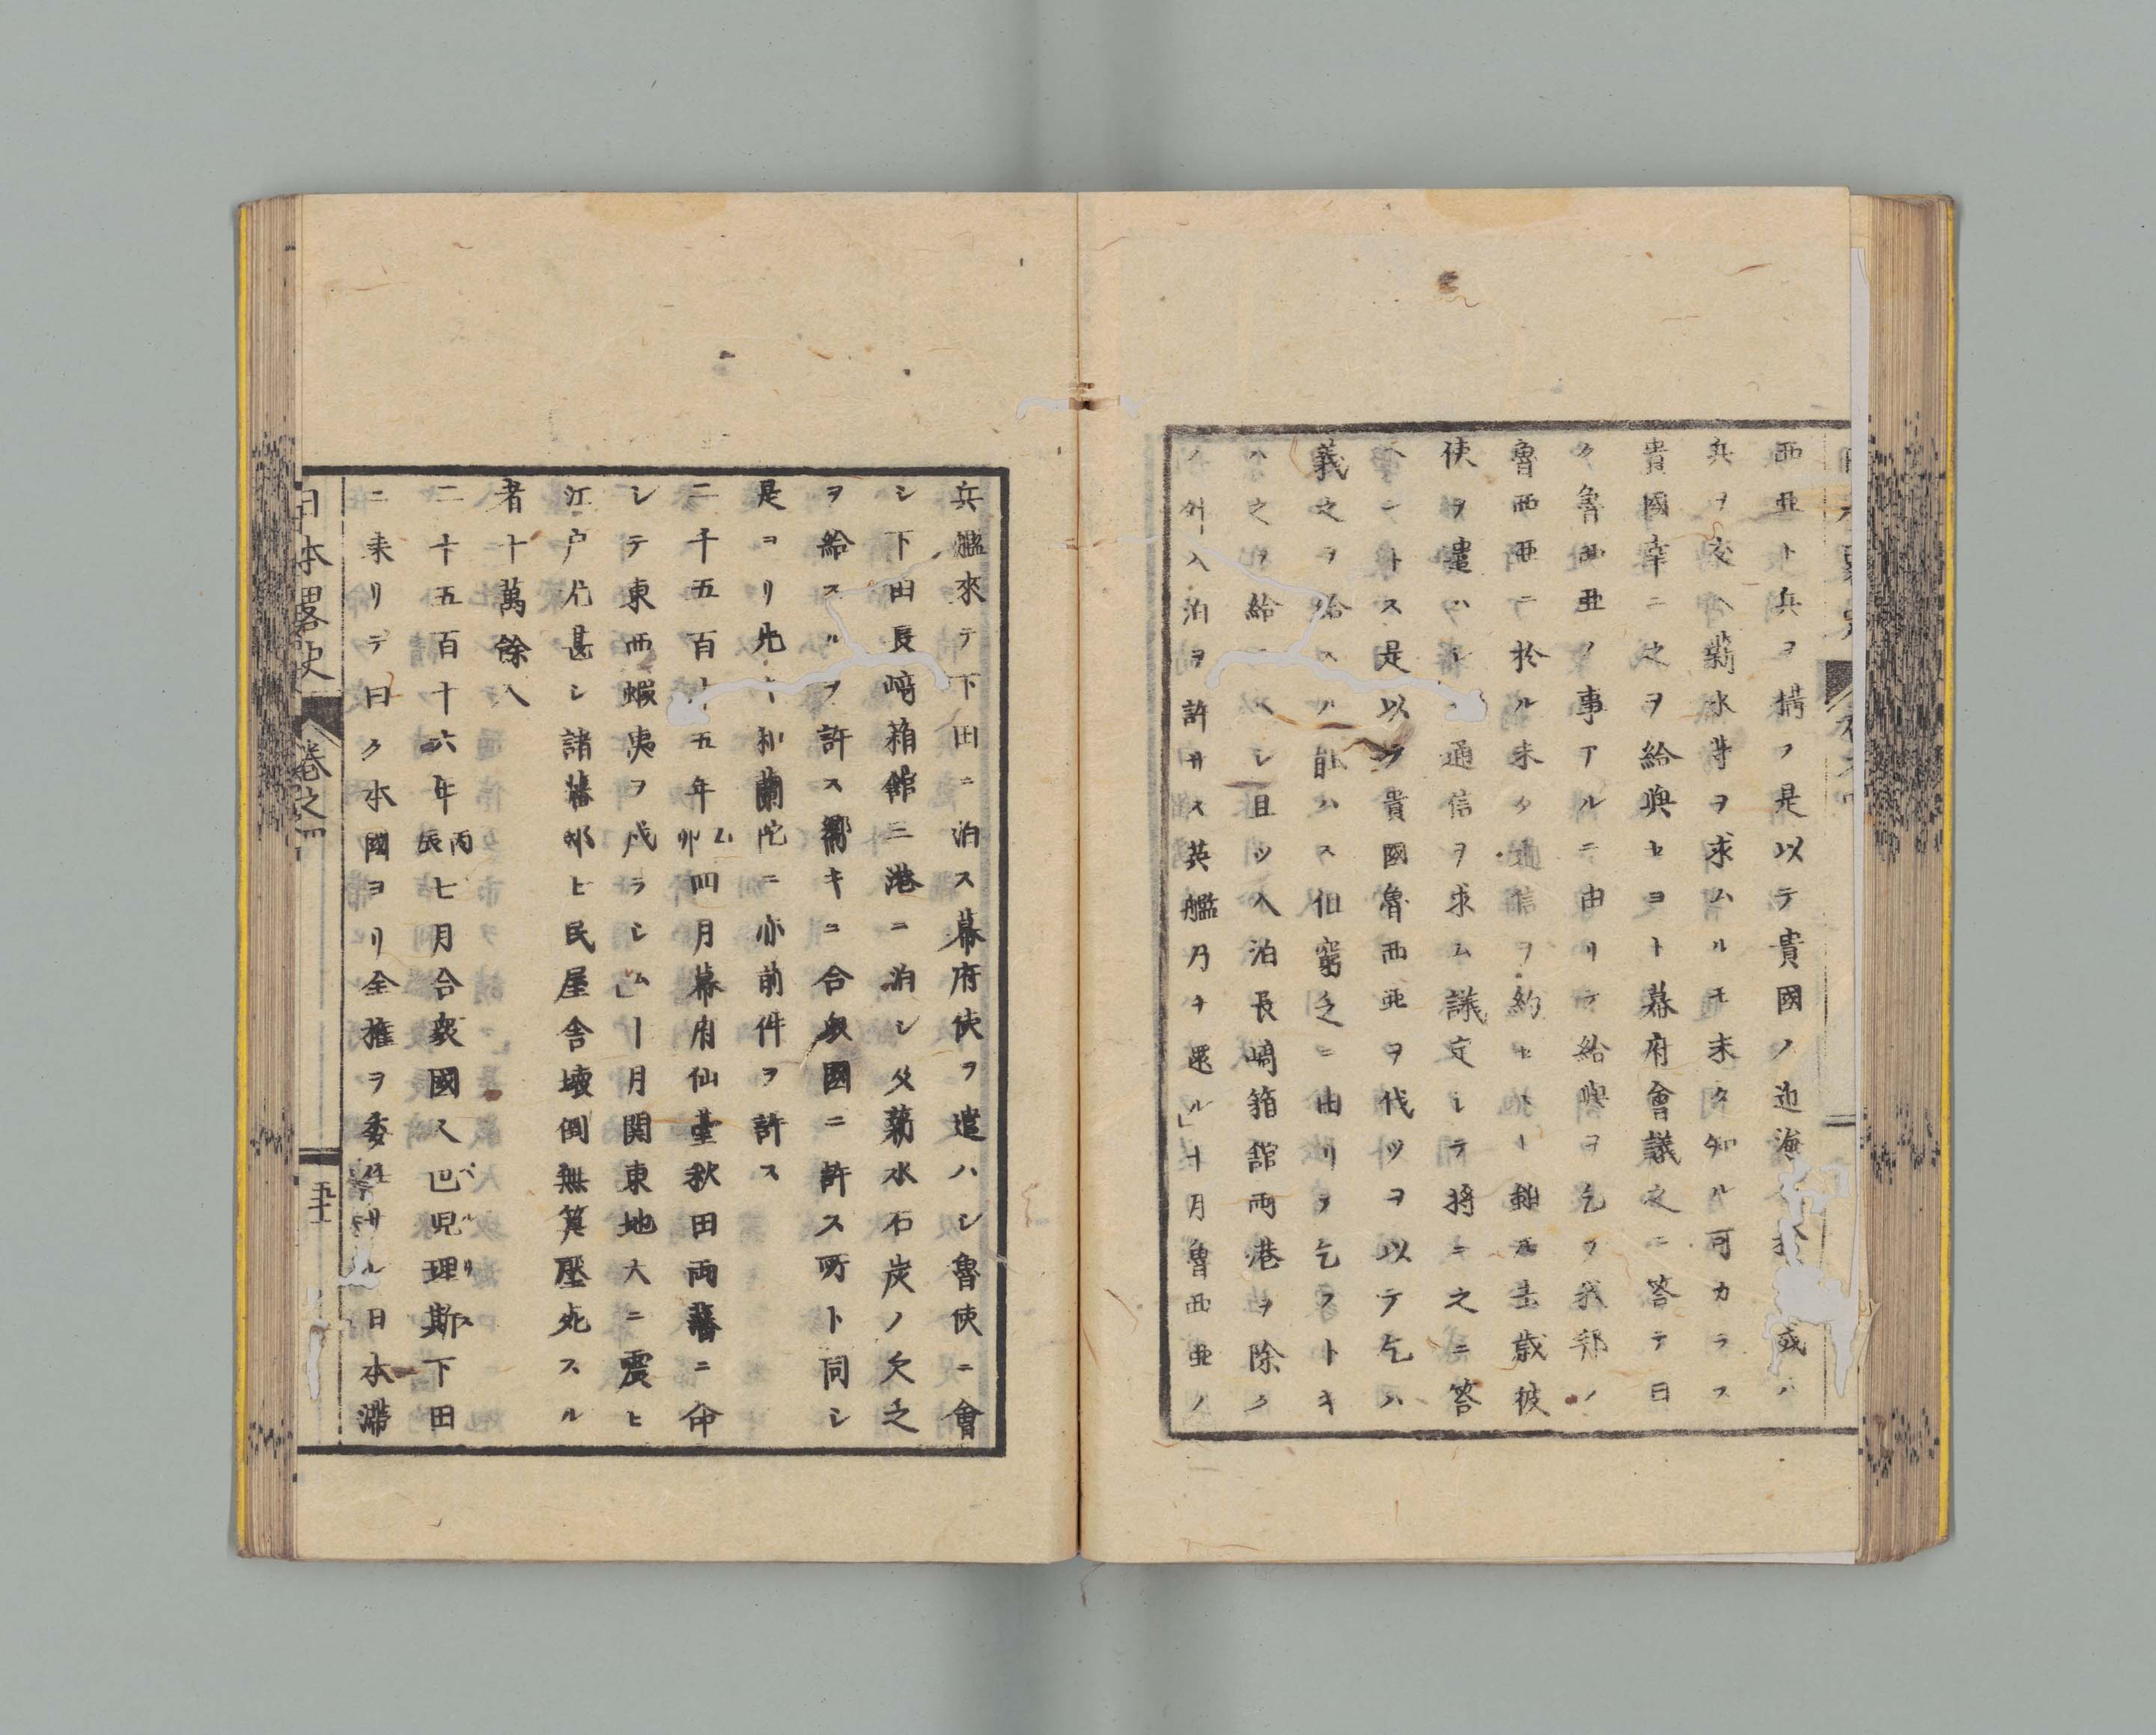 西亜ト兵ヲ搆フ是以テ貴國ノ迫海 或ハ
兵ヲ交ヘ薪水等ヲ求ムルモ未タ知ル可カラス
貴國幸ニ之ヲ給與セヨト幕府會議之ニ答テ曰
ク魯西亜ノ事アルニ由リテ給與ヲ乞フ我邦ノ
魯西亜ニ於ル未タ通信ヲ約セ 去歳彼
使ヲ遣ハシ 通信ヲ求ム議定シテ将ニ之ニ答
ヘントス是以テ貴國魯西亜ヲ伐ツヲ以テ乞ハ
義之ヲ給スル能ハス但窮乏ニ由リヲ乞フトキ
ハ之ヲ給 シ且ツ入泊長崎箱館両港ヲ除ク
ノ外入泊ヲ許サス英艦乃チ還ル」十月魯西亜ノ
兵艦來テ下田ニ泊ス幕府使ヲ遣ハシ魯使ニ會
シ下田長崎箱館三港ニ泊シ及薪水石炭ノ欠乏
ヲ給スルヲ許ス嚮キニ合衆國ニ許ス所ト同シ
是ヨリ先キ和蘭陀ニ亦前件ヲ許ス
二千五百十五年乙卯四月幕府仙臺秋田両藩ニ命
シテ東西蝦夷ヲ戍ラシム」十月関東地大ニ震ヒ
江戸尤甚シ諸藩邸ヒ民屋舎壊倒無算壓死スル
者十萬餘人
二十五百十六年丙辰七月合衆國人巴児理斯下田
ニ来リテ曰ク本國ヨリ全権ヲ委任サル日本滞
日本畧史 卷之四 五十一